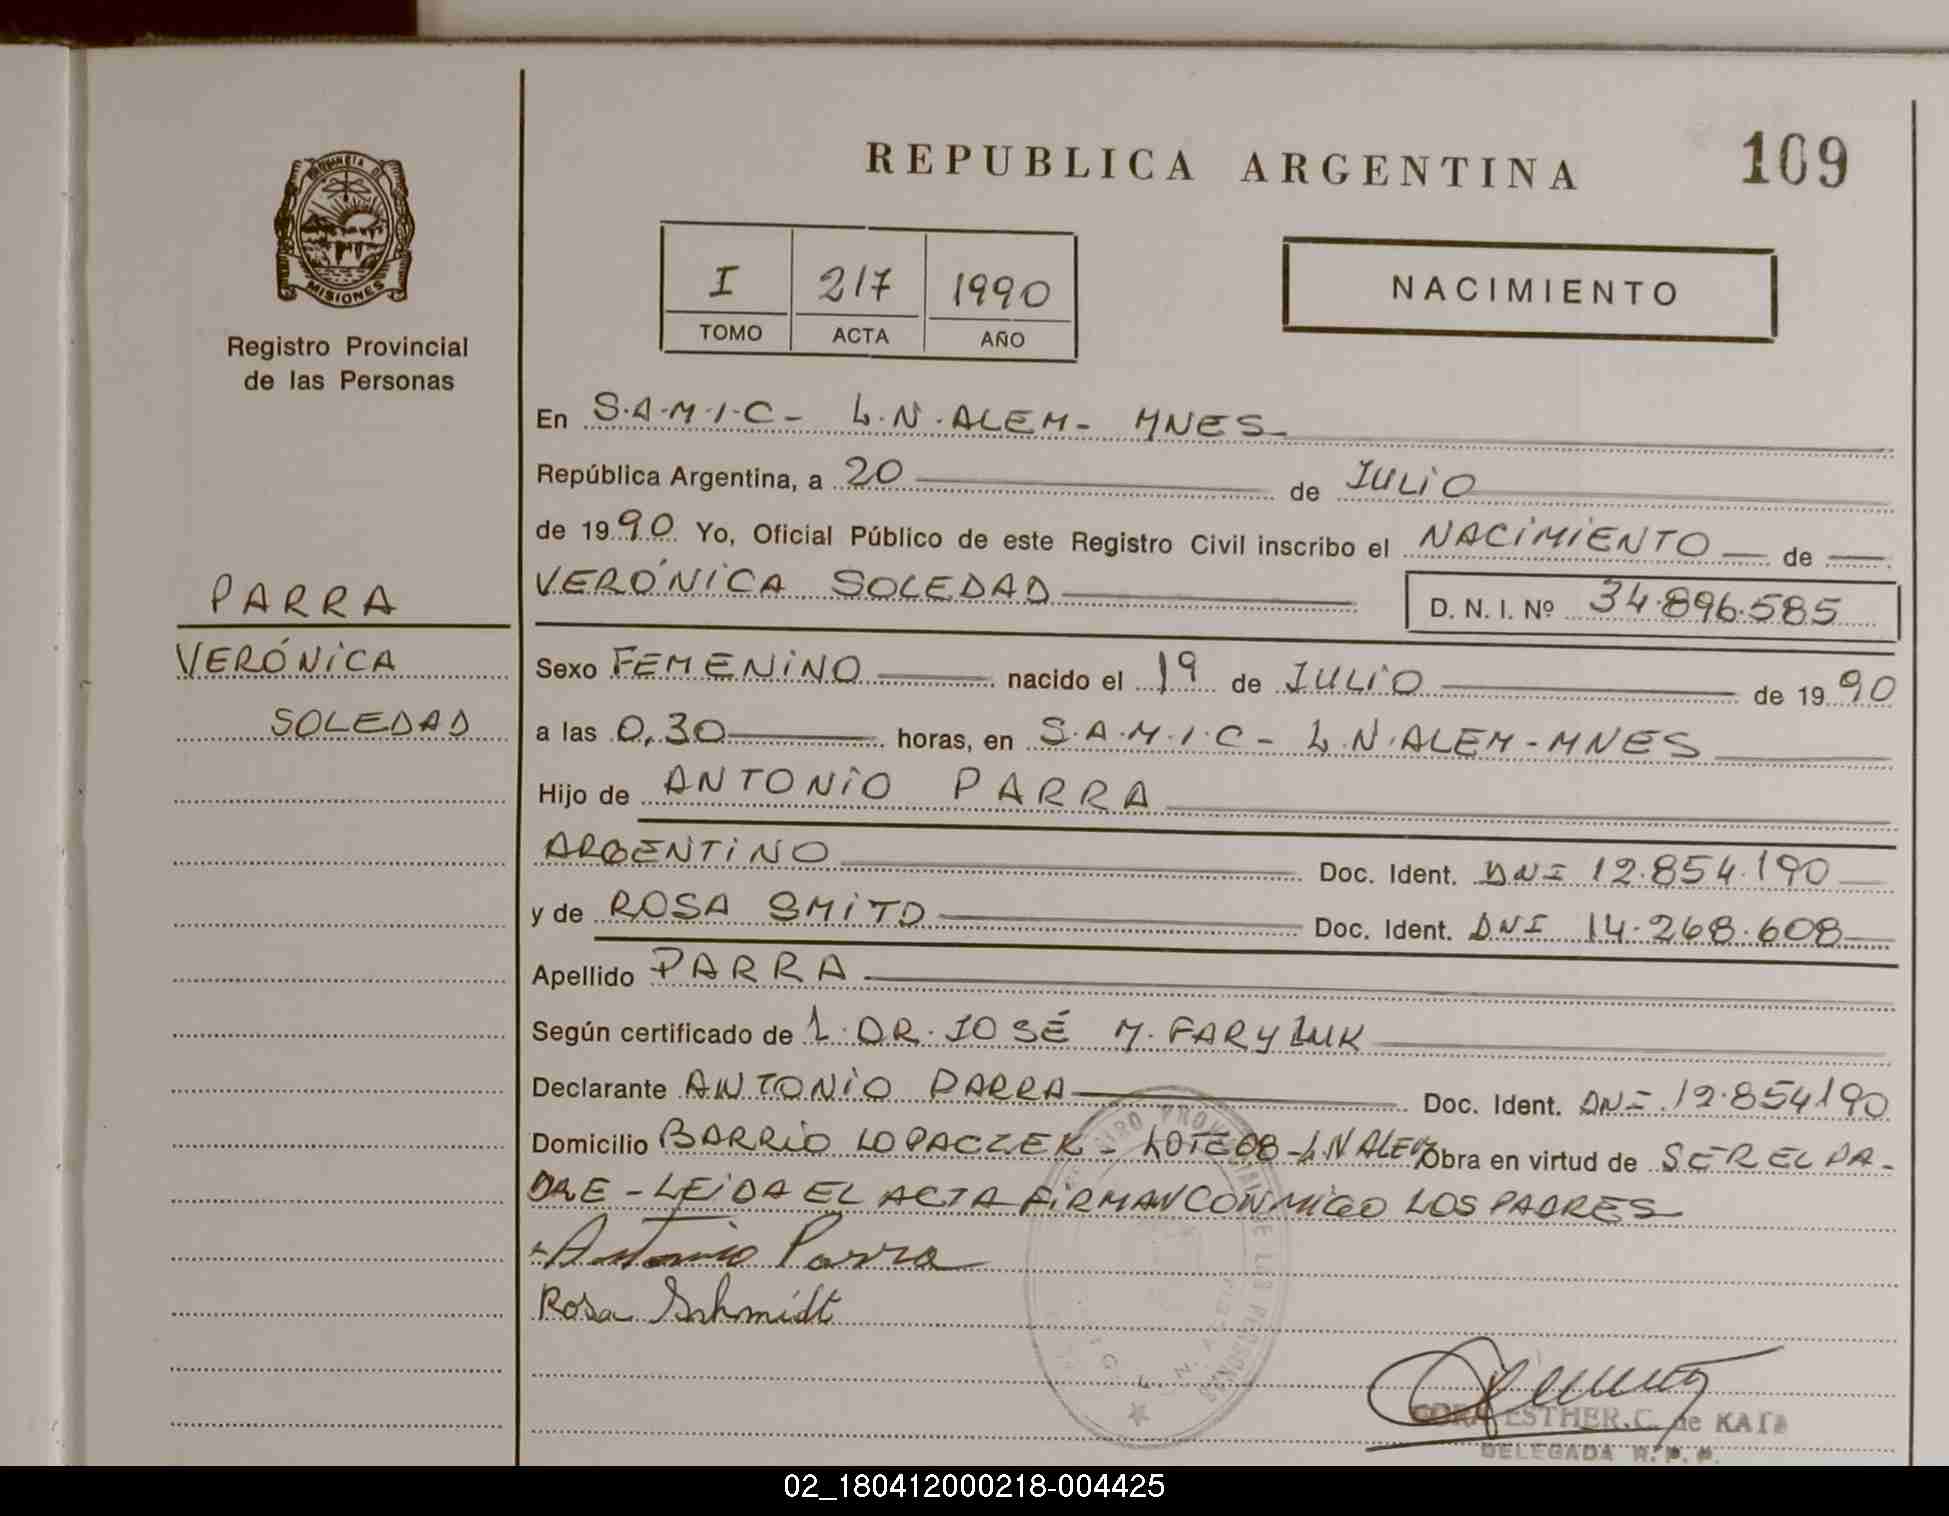 PROVINCIA DE
MISIONES
Registro Provincial
de las Personas
PARRA
VERÓNICA
SOLEDAD
REPUBLICA ARGENTINA
109
I 217 1990
TOMO ACTA AÑO
NACIMIENTO
En S.A.M.I.C- L.N.ALEM- MNES
República Argentina, a 20 de JULIO
de 1990 Yo, Oficial Público de este Registro Civil inscribo el NACIMIENTO de
VERÓNICA SOLEDAD D. N. I. Nº 34.896.585
Sexo FEMENINO nacido el 19 de JULIO de 1990
a las 0,30 horas, en S.A.M.I.C- L.N.ALEM-MNES
Hijo de ANTONIO PARRA
ARGENTINO Doc. Ident. DNI 12.854.190
y de ROSA SMITD Doc. Ident. DNI 14.268.608
Apellido PARRA
Según certificado de L.DR.JOSÉ M.FARYLUK
Declarante ANTONIO PARRA Doc. Ident. DNI 12.854190
Domicilio BARRIO LOPACZEK- LOTE 08-L.N ALEM Obra en virtud de SER EL PA-
DRE-LEIDA EL ACTA FIRMAN CONMIGO LOS PADRES
Antonio Parra
Rosa Schmidt
CORA ESTHER.C. de
DELEGADA R.P.P.
02_180412000218-004425